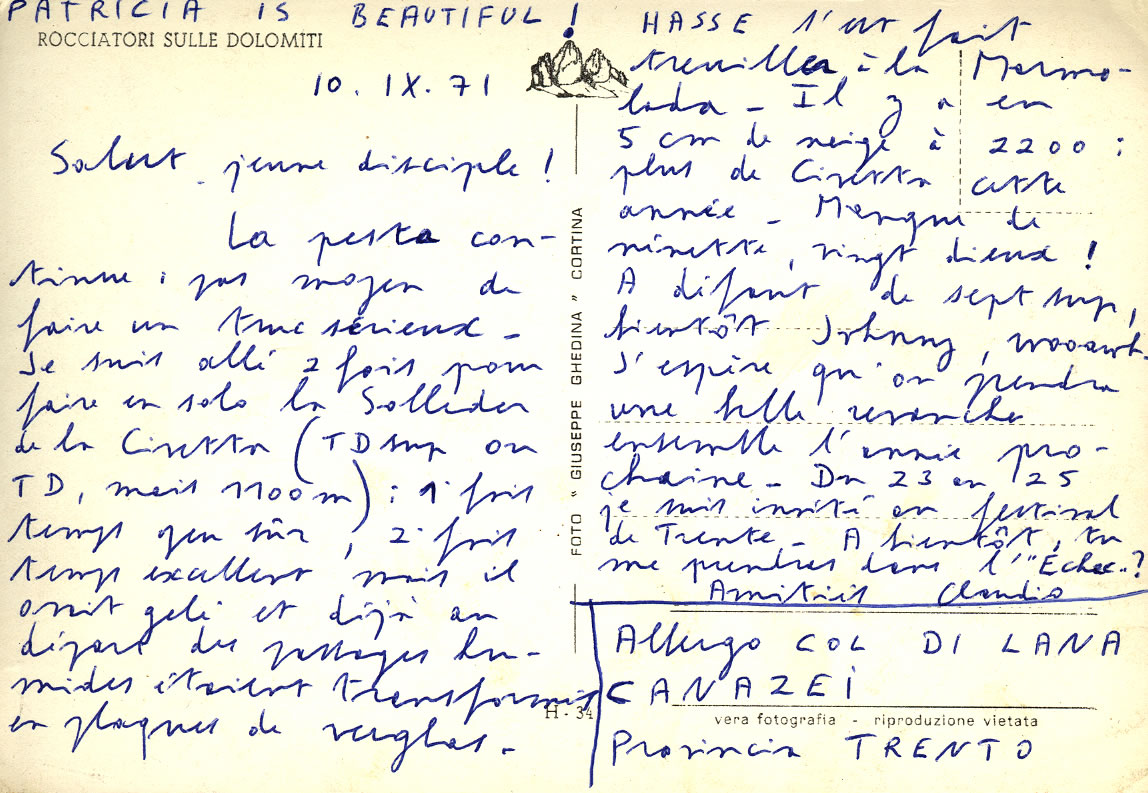 PATRICIA IS BEAUTIFUL !
ROCCIATORI SULLE DOLOMITI
10. IX. 71
Salut, jeune disciple !
La pesta con-
tinue : pas moyen de
faire un truc sérieux -
Je suis allé 2 fois pour
faire en solo la Solleder
de la Civetta (TD sup ou
TD, mais 1100 m) : 1° fois
temps peu sûr, 2° fois
temps excellent mais il
avait gelé et déjà au
départ des passages hu-
mides étaient transformés
en plaques de verglas.
FOTO "GIUSEPPE GHEDINA" CORTINA
HASSE s'est fait
treuiller à la Marmo-
lada - Il y a eu
5 cm de neige à 2200 :
plus de Civetta cette
année - Manque de
minette, vingt dieux !
A défaut de sept sup,
bientôt Johnny,
J'espère qu'on prendra
une belle revanche
ensemble l'année pro-
chaine - Du 23 au 25
je suis invité au festival
de Trente - A bientôt, tu
me prendras dans l'"Echec"..?
Amitiés Claudio
Albergo COL DI LANA
CANAZEI
H - 34
vera fotografia - riproduzione vietata
Provincia TRENTO